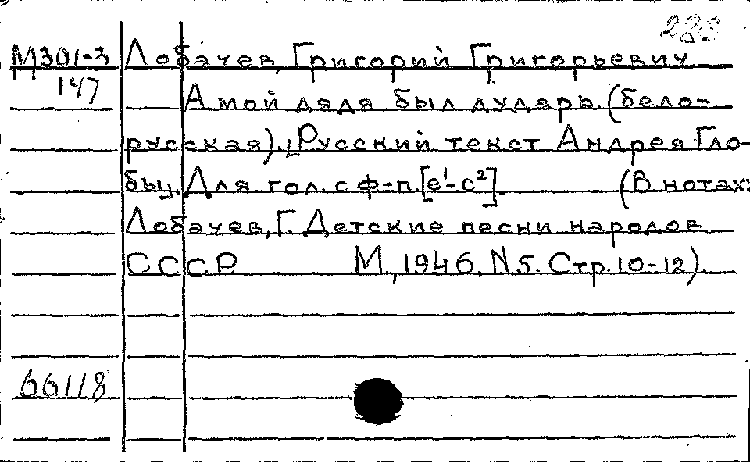 М301-3 Лобачев, Григорий Григорьевич
147
А мой дядя был дударь. (бело-
русская). Русский текст Андрея Гло-
бы. Для гол. с ф-п. [e¹-c²]. (В нотах:
Лобачев, Г. Детские песни народов
СССР М., 1946. N5. Стр. 10-12).
66118